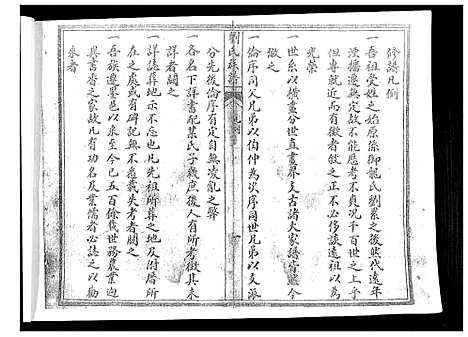 修譜凡例
一吾祖受姓之始原係御龍氏劉累之後然代遠年
湮播遷無定故不能歷考不真況千百世之上乎
但專就近而有徵者敘之正不必侈談遠祖以為
光榮
一世系以橫畫分世直畫界支古諸大家譜皆然今
倣之
一倫序同父兄弟以伯仲為次序同世兄弟以支派
劉氏族譜
凡例
分先後倫序有定自無凌亂之弊
一各名下詳書配某氏子幾庶後人有所考徵其未
詳者闕之
一詳誌葬地示不忘也凡先祖所葬之地及附厝所
在或有碑記無不悉載失考者闕之
一吾族遷墨邑以來至今已五百餘幾世務農業迥
異書香之家故凡有功名及業儒者必誌之以勸
來者